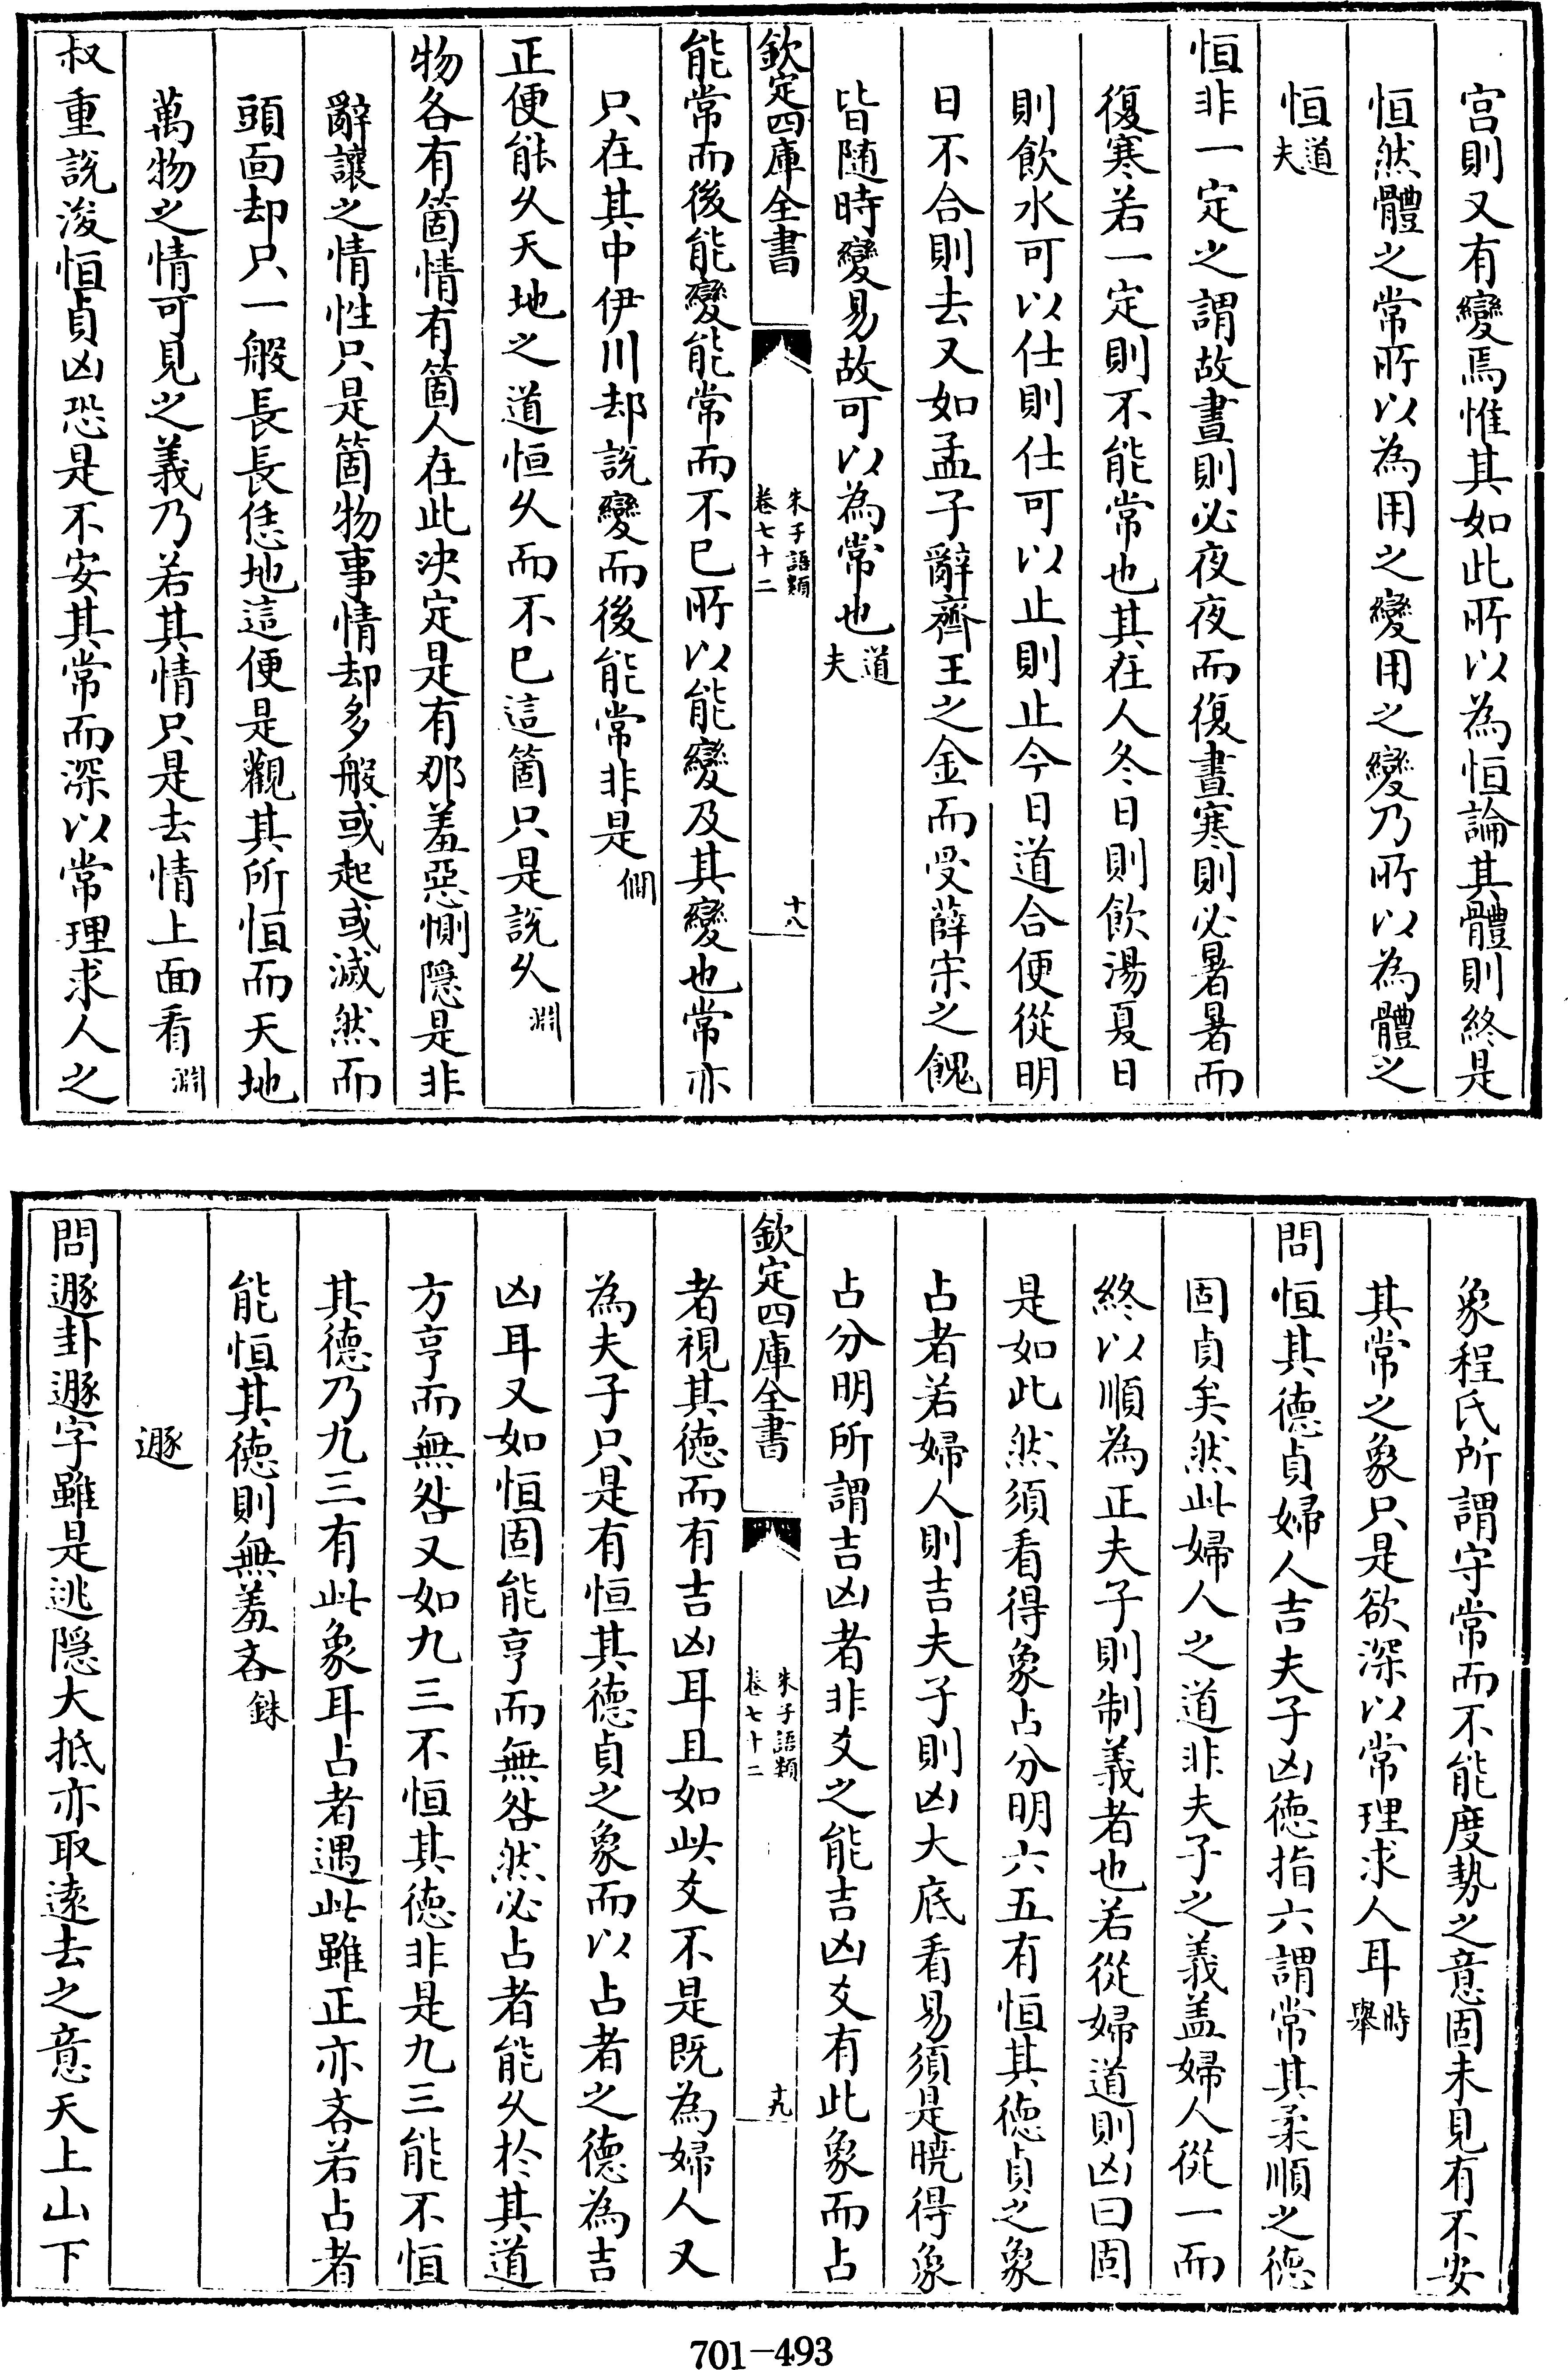 宫則又有變焉惟其如此所以為恒論其體則終是
恒然體之常所以為用之變用之變乃所以為體之
恒道夫
恒非一定之謂故晝則必夜夜而復晝寒則必暑暑而
復寒若一定則不能常也其在人冬日則飲湯夏日
則飲水可以仕則仕可以止則止今日道合便從明
日不合則去又如孟子辭齊王之金而受薛宋之餽
皆隨時變易故可以為常也道夫
欽定四庫全書
朱子語類
卷七十二
十八
能常而後能變能常而不已所以能變及其變也常亦
只在其中伊川却説變而後能常非是僩
正便能久天地之道恒久而不已這箇只是説久淵
物各有箇情有箇人在此決定是有那羞惡惻隠是非
辭讓之情性只是箇物事情却多般或起或滅然而
頭面却只一般長長長恁地這便是觀其所恒而天地
萬物之情可見之義乃若其情只是去情上面看淵
叔重説浚恒貞凶恐是不安其常而深以常理求人之
象程氏所謂守常而不能度勢之意固未見有不安
其常之象只是欲深以常理求人耳時舉
問恒其德貞婦人吉夫子凶德指六謂常其柔順之德
固貞矣然此婦人之道非夫子之義盖婦人從一而
終以順為正夫子則制義者也若從婦道則凶曰固
是如此然須看得象占分明六五有恒其德貞之象
占者若婦人則吉夫子則凶大底看易須是曉得象
占分明所謂吉凶者非爻之能吉凶爻有此象而占
欽定四庫全書
朱子語類
卷七十二
十九
者視其德而有吉凶耳且如此爻不是既為婦人又
為夫子只是有恒其德貞之象而以占者之德為吉
凶耳又如恒固能亨而無咎然必占者能久於其道
方亨而無咎又如九三不恒其德非是九三能不恒
其德乃九三有此象耳占者遇此雖正亦吝若占者
能恒其德則無羞吝銖
遯
問遯卦遯字雖是逃隠大抵亦取遠去之意天上山下
701-493